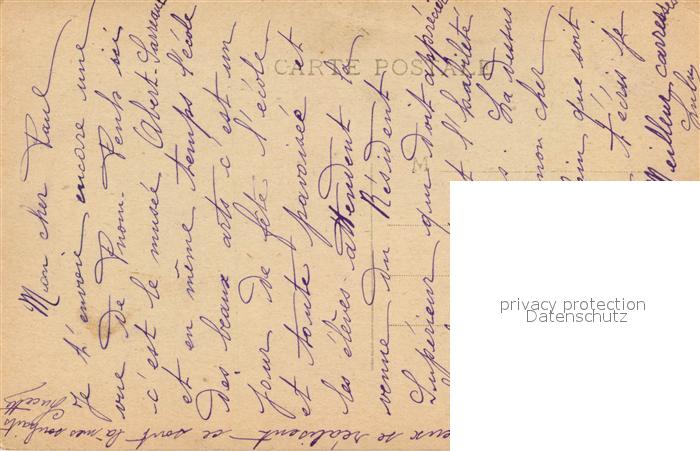 CARTE POSTALE
Mon cher Paul
Je t'envoie encore une
vue de Pnom. Penh ici
c'est le musée Abert-Sarraut
et en même temps l'école
des beaux arts c'est un
jour de fête l'école
est toute pavoisée et
les élèves attendent la
venue du Résident
Supérieur qui doit apprécier
l'habileté
La dessus
mon cher
que soit
t'écris je
Meilleur caresse
se réalisent ce sont la mes souhaits
privacy protection
Datenschutz